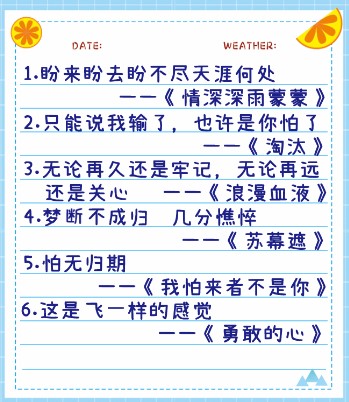 DATE: WEATHER:
1.盼来盼去盼不尽天涯何处
——《情深深雨蒙蒙》
2.只能说我输了，也许是你怕了
——《淘汰》
3.无论再久还是牢记，无论再远
还是关心 ——《浪漫血液》
4.梦断不成归 几分憔悴
——《苏幕遮》
5.怕无归期
——《我怕来者不是你》
6.这是飞一样的感觉
——《勇敢的心》